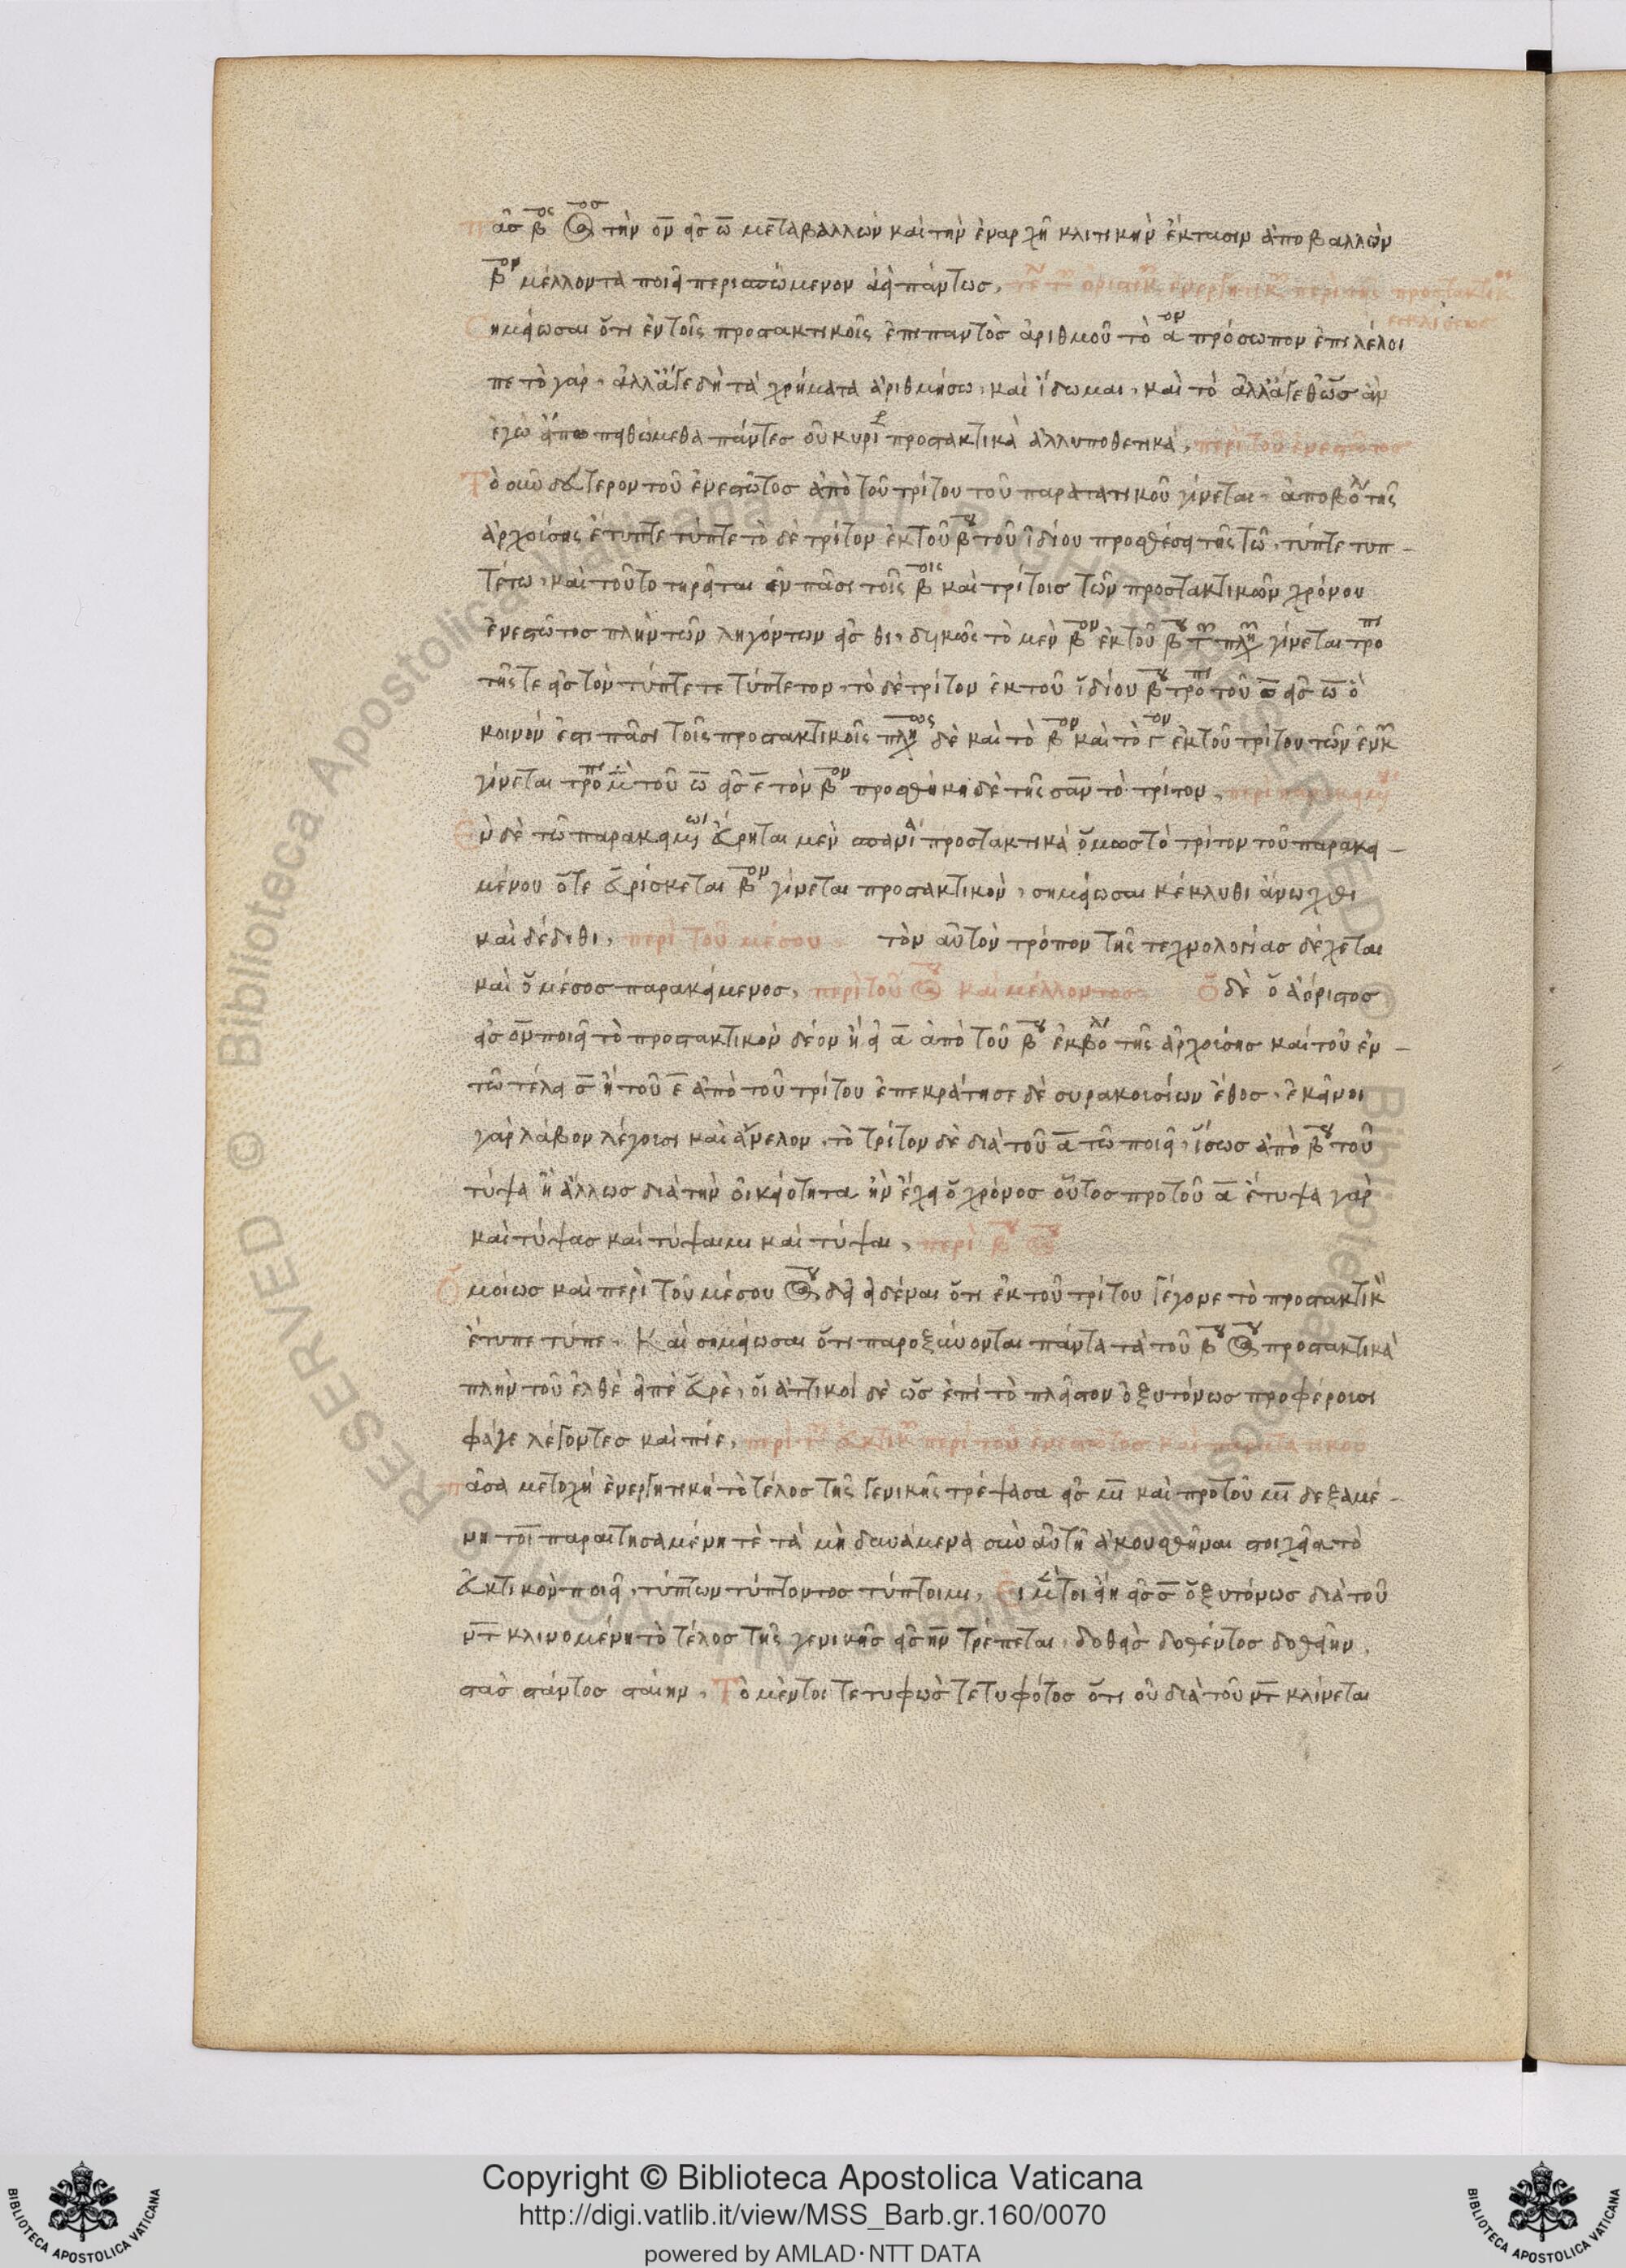 πᾶσ β̅ος ἀόριστοσ τὴν ον εἰσ ω̅ μεταβαλλὼν καὶ τὴν ἐναρχῆ κλιτικὴν ἔκτασιν ἀποβαλλὼν
β̅ον μέλλοντα ποιεῖ περισπώμενον ἀεὶ πάντωσ,
Σημείωσαι ὅτι ἐν τοῖς προστακτικοῖς ἐπιπαντὸσ ἀριθμοῦ τὸ α̅ον πρόσωπον ἐπιλέλοι
πε τὸ γάρ, ἀλλάγε δὴ τὰ χρήματα ἀριθμήσω, καὶ ἴδωμαι, καὶ τὸ ἀλλάγεθ ὡσ ἂν
ἐγὼ εἴπω πειθώμεθα πάντεσ οὐ κυρί προστακτικὰ ἀλλυποθετικά, περὶ τοῦ ἐνεστῶτοσ
Τὸ σὺν δεύτερον τοῦ ἐνεστῶτοσ ἀπὸ τοῦ τρίτου τοῦ παρατατικοῦ γίνεται, ἀποβολῆ τῆς
ἀρχούσης ἔτυπτε τύπτε τὸ δὲ τρίτον ἐκ τοῦ β̅ου τοῦ ἰδίου προσθέσει τῆς τῶ, τύπτε τυπ-
τέτω, καὶ τοῦτο τηρεῖται ἐν πᾶσι τοῖς β̅οις καὶ τρίτοισ τῶν προστακτικῶν χρόνου
ἐνεστῶτοσ πλὴν τῶν ληγόντων εἰσ θι, δυικῶς τὸ μὲν β̅ον ἐκ τοῦ β̅ου τ πλη γίνεται τροπῆ
τῆς τε εἰσ τὸν τύπτετε τύπτετον, τὸ δὲ τρίτον ἐκ τοῦ ἰδίου β̅ου τροπῆ τοῦ ο̅ εἰσ ω̅ ὃ
κοινόν ἐστι πᾶσι τοῖς προστακτικοῖς πληως δὲ καὶ τὸ β̅ον καὶ τὸ γ̅ον ἐκ τοῦ τρίτου τῶν ἑνκ
γίνεται τροπῆ μὲν τοῦ ω̅ εἰσ ε̅ τὸν β̅ον προσθήκη δὲ τῆς σαν τὸ τρίτον,
Ἐν δὲ τῶ παρακειμένωι εὕρηται μὲν σπανία προστακτικὰ ὅμωσ τὸ τρίτον τοῦ παρακει-
μένου ὅτε εὑρίσκεται β̅ον γίνεται προστακτικὸν, σημείωσαι κέκλυθι ἄνωχθι
καὶ δέδιθι, περὶ τοῦ μέσου τὸν αὐτὸν τρόπον τῆς τεχνολογίασ δέχεται
καὶ ὁ μέσοσ παρακείμενοσ, περὶ τοῦ ἀορίστου καὶ μέλλοντοσ Ὁ δὲ ὁ ἀόριστοσ
εἰσ ον ποιεῖ τὸ προστακτικὸν δέον ἢ εἰ α̅ ἀπὸ τοῦ β̅ου ἐκβολῆ τῆς ἀρχούσησ καὶ τοῦ ἐν-
τῶ τέλει σ̅ ἢ τοῦ ε̅ ἀπὸ τοῦ τρίτου ἐπεκράτησε δὲ συρακουσίων ἔθοσ, ἐκεῖνοι
γὰρ λάβον λέγουσι καὶ ἄνελον, τὸ τρίτον δὲ διὰ τοῦ α̅ τω ποιεῖ, ἴσωσ ἀπὸ β̅ου τοῦ
τύψα ἢ ἄλλωσ διὰ τὴν οἰκειότητα ἣν ἔχει ὁ χρόνοσ οὗτοσ πρὸ τοῦ α̅ ἔτυψα γὰρ
καὶ τύψασ καὶ τύψαιμι καὶ τύψαι, περὶ β̅ου ἀορίστου
Ὁμοίωσ καὶ περὶ τοῦ μέσου ἀορίστου δεῖ εἰδέναι ὅτι ἐκ τοῦ τρίτου γέγονε τὸ προστακτικ
ἔτυπε τύπε. Καὶ σημείωσαι ὅτι παροξύνονται πάντα τὰ τοῦ β̅ου ἀορίστου προστακτικὰ
πλὴν τοῦ ἐλθὲ εἰπὲ εὑρὲ, οἱ ἀττικοὶ δὲ ὡσ ἐπὶ τὸ πλεῖστον ὀξυτόνωσ προφέρουσι
φάγε λέγοντεσ καὶ πίε,
πᾶσα μετοχὴ ἐνεργητικὴ τὸ τέλοσ τῆς γενικῆς τρέψασα εἰσ μι̅ καὶ πρὸ τοῦ μι̅ δεξαμέ-
νη τοι παραιτησαμένη τὲ τὰ μὴ δυνάμενα σὺν αὐτῆ ἀκουσθῆναι στοιχεῖα τὸ
εὐκτικὸν ποιεῖ, τύπτων τύπτοντοσ τύπτοιμι, Εἰ μέντοι εἴη εἰσ σ̅ ὀξυτόνωσ διὰ τοῦ
ντ̅ κλινομένη τὸ τέλοσ τῆς γενικῆσ εἰσ ην̅ τρέπεται, δοθεὶσ δοθέντοσ δοθείην,
στὰσ στάντοσ σταίην, Τὸ μέντοι τετυφὼσ τετυφότοσ ὅτι οὐ διὰ τοῦ ντ̅ κλίνεται
Copyright © Biblioteca Apostolica Vaticana
http://digi.vatlib.it/view/MSS_Barb.gr.160/0070
powered by AMLAD·NTT DATA